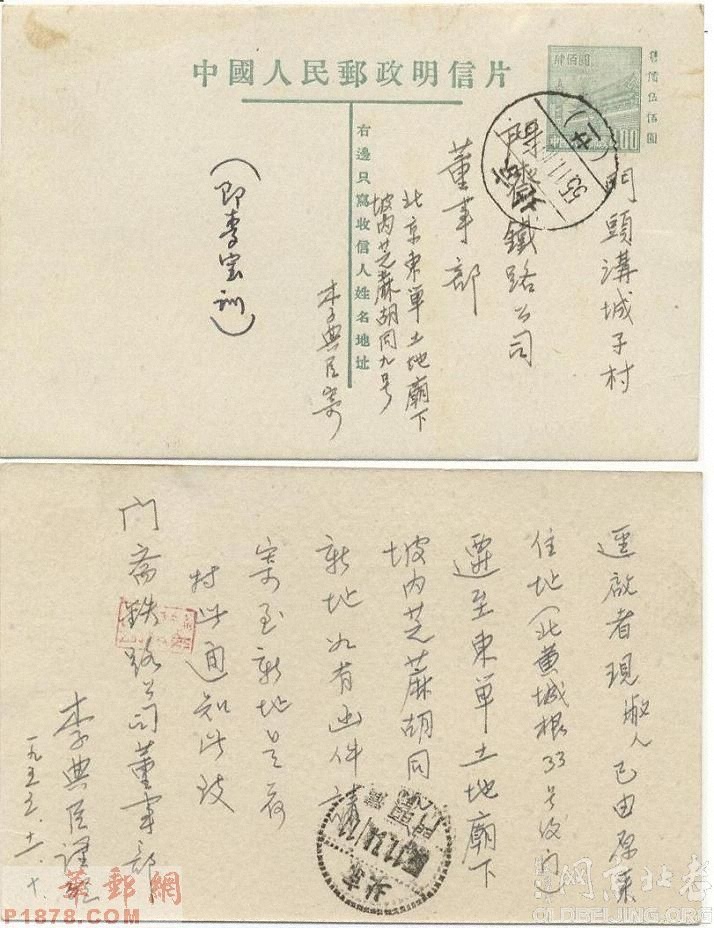 中國人民郵政明信片
肆佰圓
售價伍佰圓
右邊只寫收信人姓名地址
門頭溝城子村
門齋鐵路公司
董事部
北京東單土地廟下
坡内芝蔴胡同九号
李典臣寄
(即李宝訓)
逕啟者現敝人已由原来
住地(北黄城根33号后门)
遷至東單土地廟下
坡内芝蔴胡同
新地如有函件請
寄至新地是荷
特此通知此致
门斋鉄路公司董事部
李典臣謹
一九五五.十一.十.
華郵網
P1878.COM
OLDBEIJING.ORG